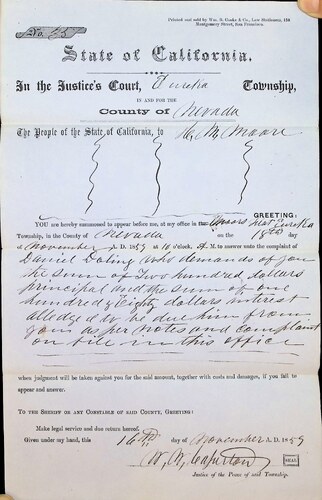 Printed and sold by Wm. B. Cooke & Co., Law Stationers, 138
Montgomery Street, San Francisco.
No. 25
State of California.
In the Justice's Court, Eureka Township,
IN AND FOR THE
County of Nevada
The People of the State of California, to H. M. Moore
GREETING:
YOU are hereby summoned to appear before me, at my office in the Moors Flat Eureka
Township, in the County of Nevada on the 18th day
of November A. D. 1859 at 10 o'clock, A M. to answer unto the complaint of
Daniel Doling who demands of you
the sum of Two hundred dollars
principal and the sum of one
hundred & Eighty dollars interest
alledged to be due him from
you as per notes and complaint
on file in this office
when judgment will be taken against you for the said amount, together with costs and damages, if you fail to
appear and answer.
TO THE SHERIFF OR ANY CONSTABLE OF SAID COUNTY, GREETING:
Make legal service and due return hereof.
Given under my hand, this 16th day of November A. D. 1859
W. W. Caperton SEAL
Justice of the Peace of said Township.